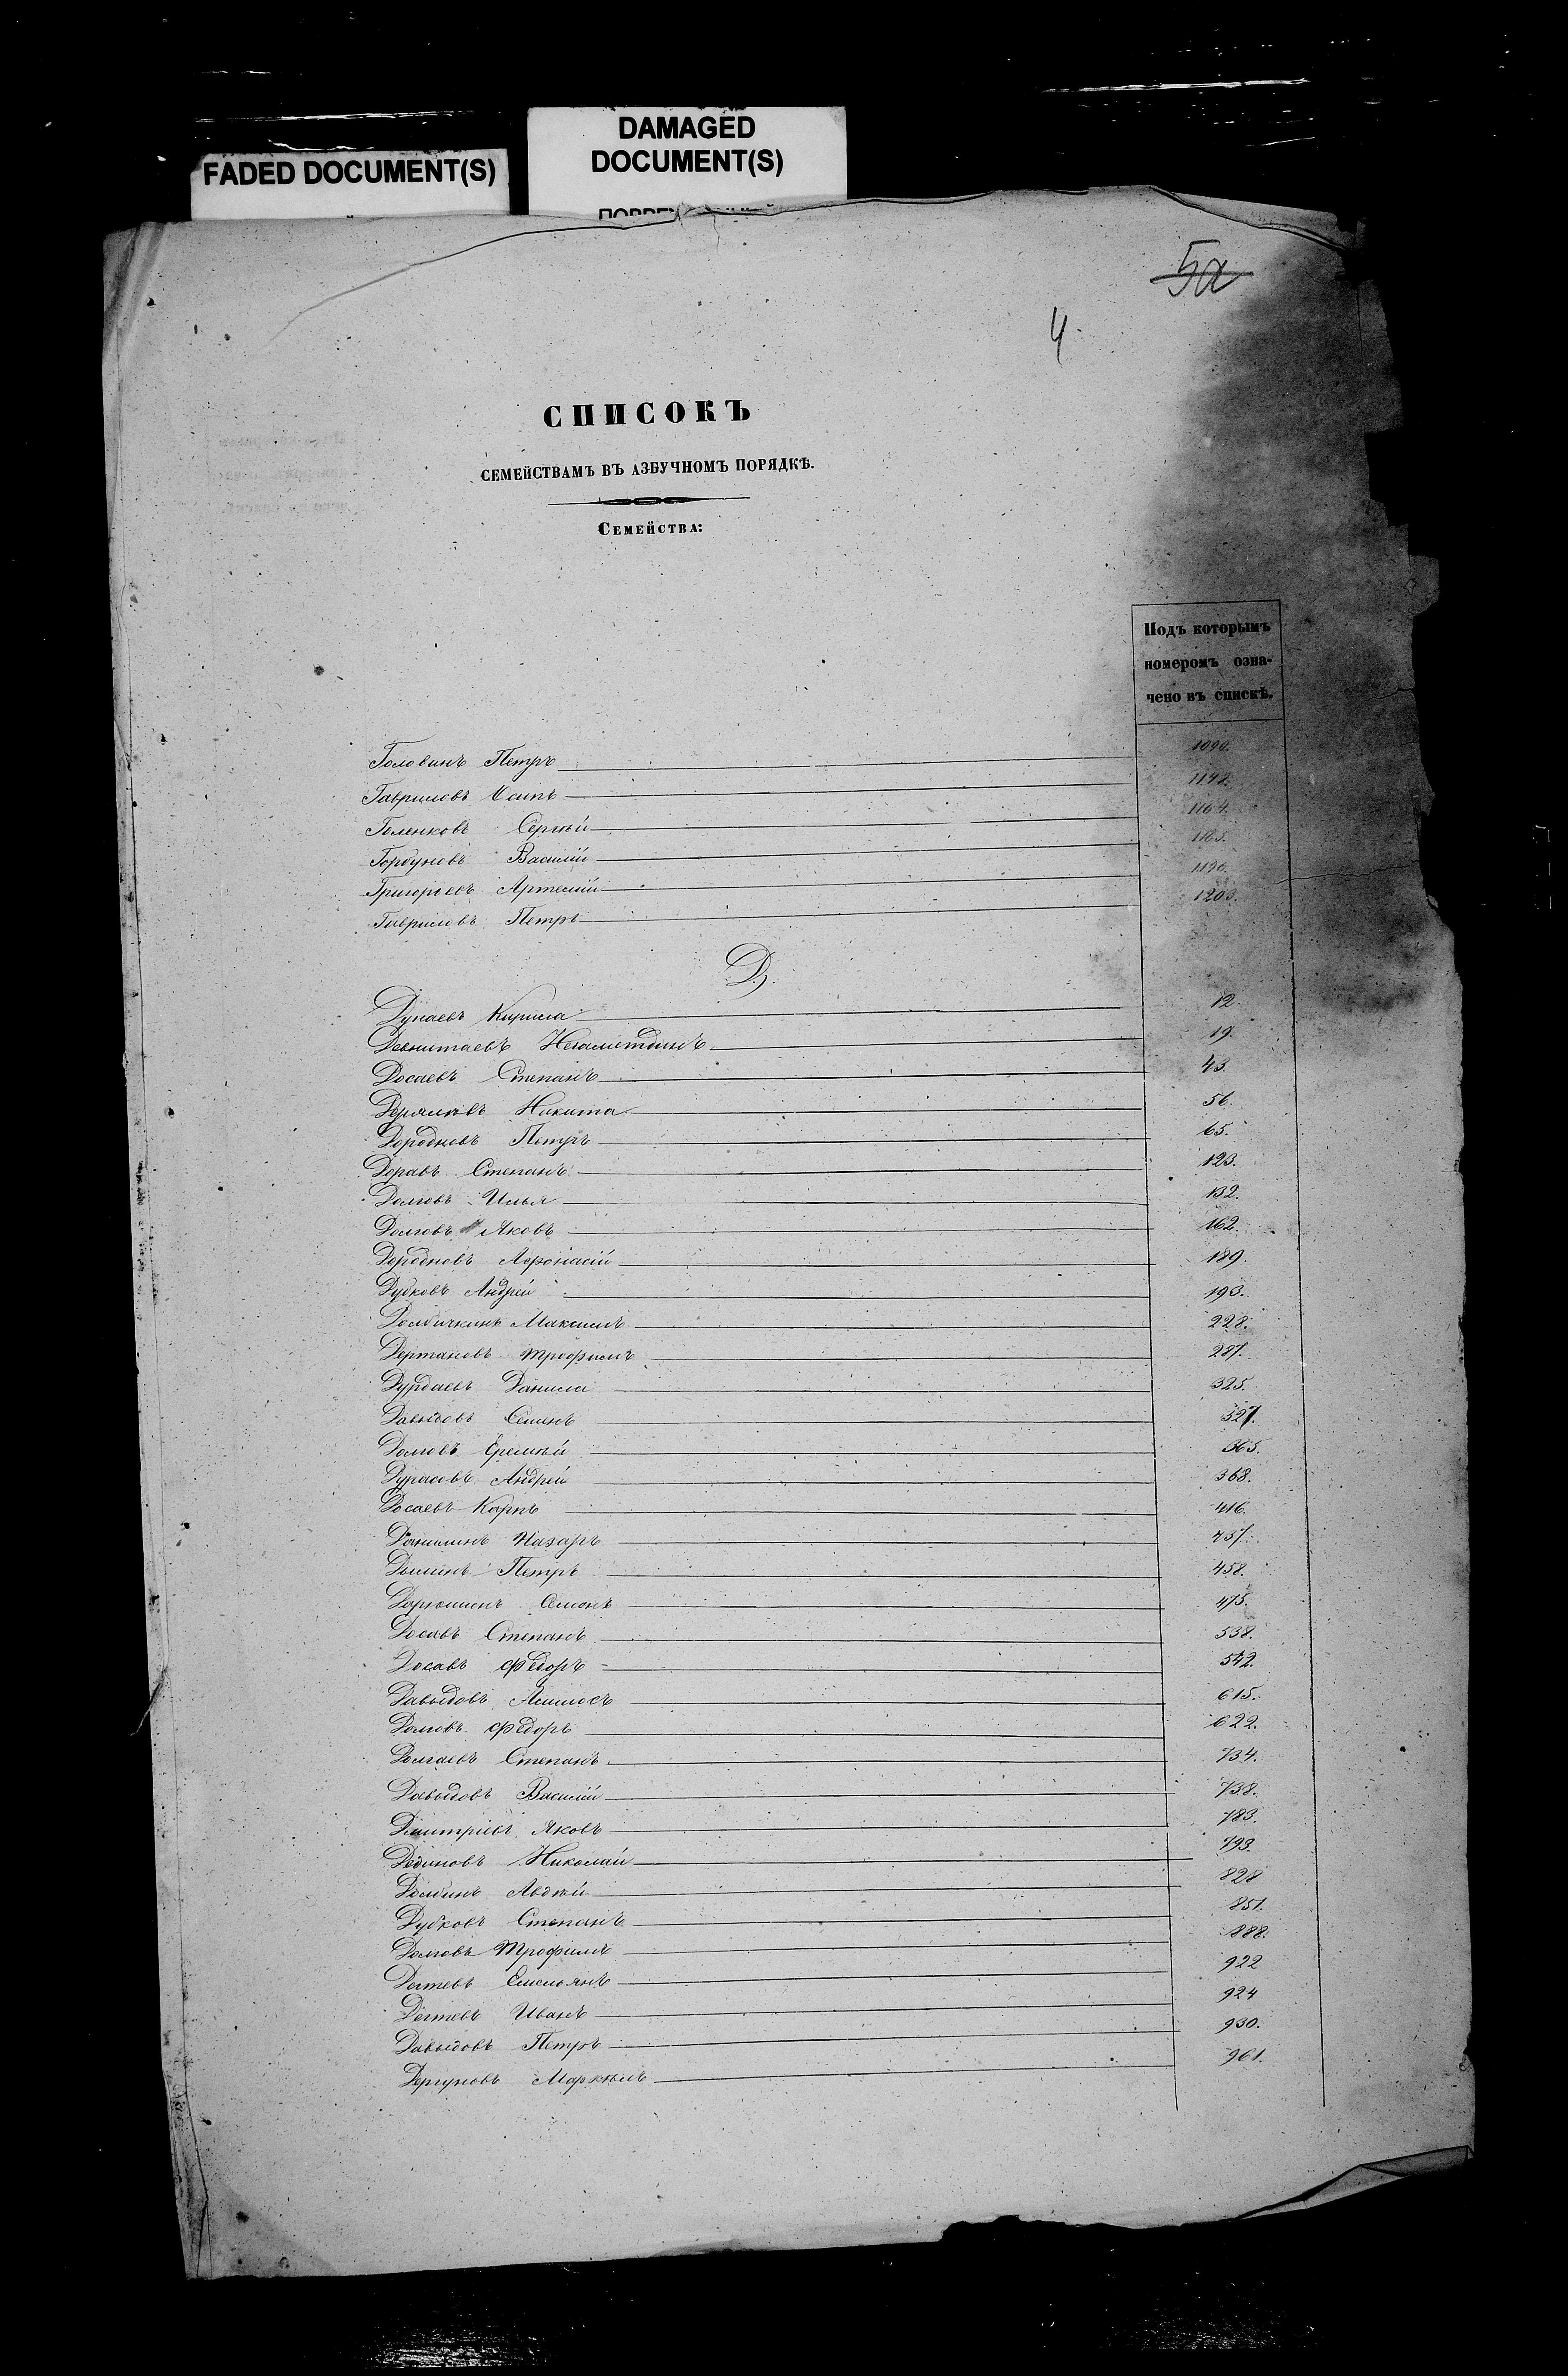 DAMAGED
DOCUMENT(S)
FADED DOCUMENT(S)
5а
4.
СПИСОКЪ
СЕМЕЙСТВАМЪ ВЪ АЗБУЧНОМЪ ПОРЯДКѢ.
Семейства:
Подъ которымъ
номеромъ озна-
чено въ спискѣ.
Головинъ Петръ 1090.
Гавриловъ Осипъ 1142.
Голенковъ Сергѣй 1164.
Горбуновъ Василій 1185.
Григорьевъ Артемій 1190.
Гавриловъ Петръ 1203.
Д.
Дунаевъ Кирила 12.
Девлитаевъ Незаметдинъ 19.
Досаевъ Степанъ 43.
Никита 56.
Дородновъ Петръ 65.
Степанъ 123.
Долговъ Илья 132.
Долговъ Яковъ 162.
Дородновъ Афонасій 189.
Дубковъ Андрей 193.
Максимъ 228.
Дертановъ Трофимъ 287.
Дурдаевъ Данила 325.
Давыдовъ Семенъ 327.
Долговъ Еремѣй 365.
Дурасовъ Андрей 368.
Досаевъ Карпъ 416.
Данилинъ Назаръ 457.
Дылинъ Петръ 458.
Семонъ 475.
Досавъ Степанъ 538.
Досавъ Федоръ 542.
Давыдовъ 615.
Долговъ Федоръ 622.
Долгаевъ Степанъ 734.
Давыдовъ Василій 738.
Дмитріевъ Яковъ 783.
Дединовъ Николай 793.
Долбинъ Авдѣй 828
Дубковъ Степанъ 851.
Долговъ Трофимъ 888.
Дегтевъ Емельянъ 922
Дегтевъ Иванъ 924
Давыдовъ Петръ 930.
Дергуновъ Маркѣлъ 961.